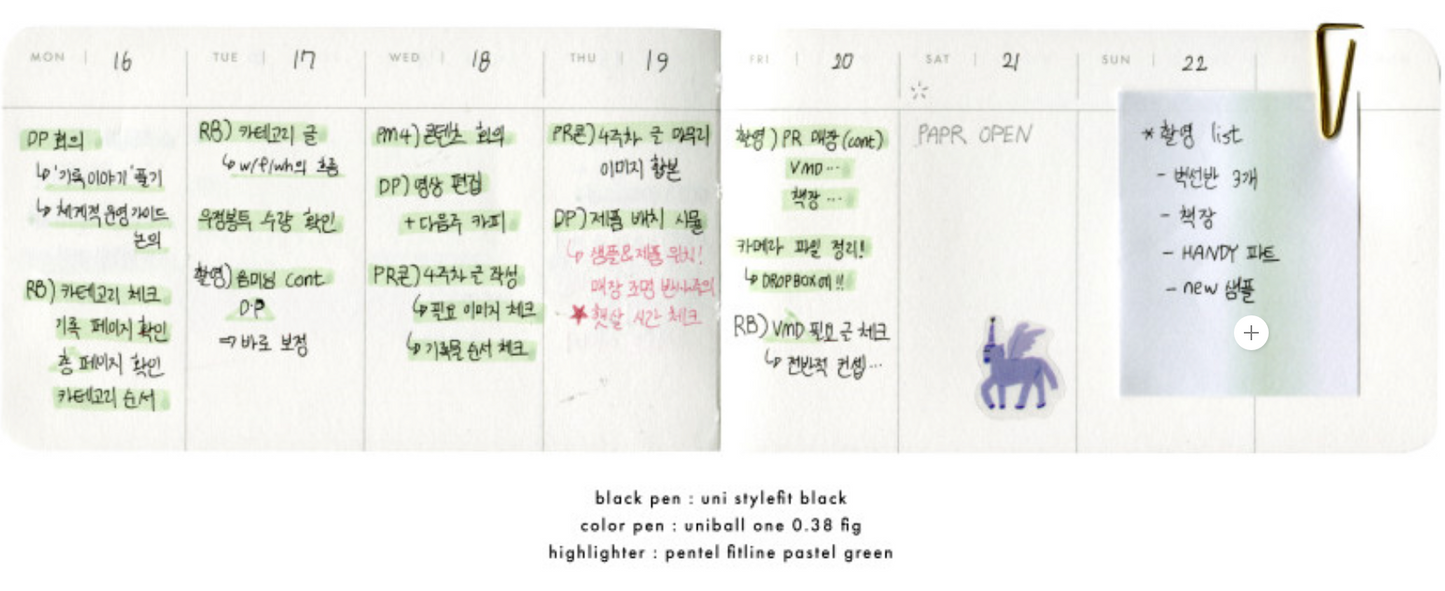 MON | 16
DP 회의
↳ '기록이야기' 풀기
↳ 체계적 운영 가이드
논의
RB) 카테고리 체크
기록 페이지 확인
총 페이지 확인
카테고리 순서
TUE | 17
RB) 카테고리 글
↳ w/f/wh의 흐름
우정봉투 수량 확인
촬영) 음미님 cont
D.P
⇒ 바로 보정
WED | 18
PM4) 콘텐츠 회의
DP) 영상 편집
+ 다음주 카피
PR콘) 4주차 글 작성
↳ 필요 이미지 체크
↳ 기록물 순서 체크
THU | 19
PR콘) 4주차 글 마무리
이미지 합본
DP) 제품 배치 시뮬
↳ 샘플&제품 위치!
매장 조명 반사주의
★ 햇살 시간 체크
FRI | 20
촬영) PR 매장 (cont)
VMD ...
책장 ...
카메라 파일 정리!
↳ DROPBOX에!!
RB) VMD 필요 글 체크
↳ 전반적 컨셉...
SAT | 21
PAPR OPEN
SUN | 22
* 촬영 list
- 벽선반 3개
- 책장
- HANDY 파트
- new 샘플
black pen : uni stylefit black
color pen : uniball one 0.38 fig
highlighter : pentel fitline pastel green